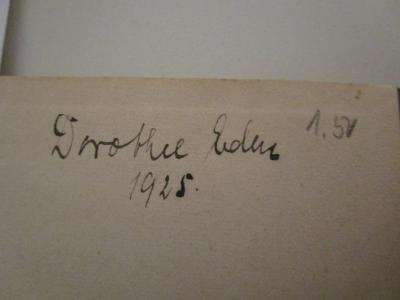 Dorothee Eden 1.50
1925.